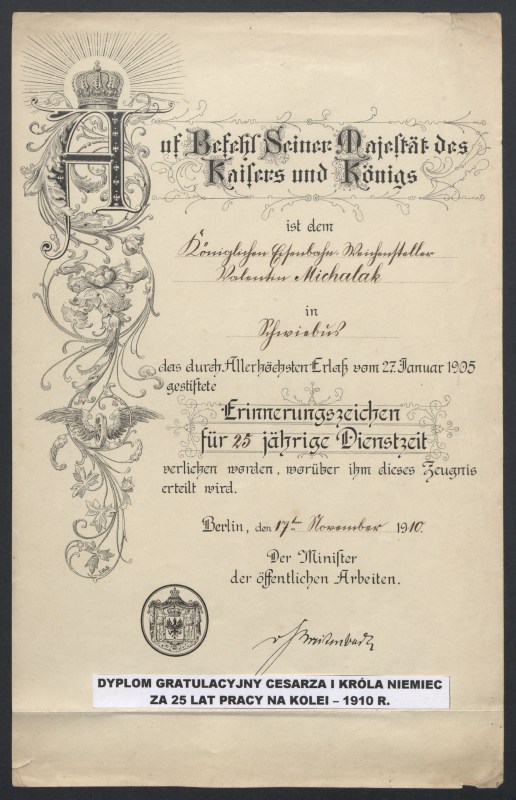 Auf Befehl Seiner Majestät des
Kaisers und Königs
ist dem
Königlichen Eisenbahn-Weichensteller
Valentin Michalak
in
Schwiebus
das durch Allerhöchsten Erlaß vom 27. Januar 1905
gestiftete
Erinnerungszeichen
für 25 jährige Dienstzeit
verliehen worden, worüber ihm dieses Zeugnis
erteilt wird.
Berlin, den 17ten November 1910.
Der Minister
der öffentlichen Arbeiten.
v Breitenbach
DYPLOM GRATULACYJNY CESARZA I KRÓLA NIEMIEC
ZA 25 LAT PRACY NA KOLEI – 1910 R.